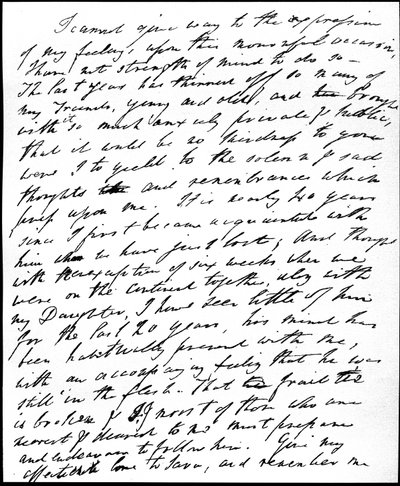 I cannot give way to the expression
of my feelings upon this mournful occasion,
I have not strength of mind to do so –
The last year has thinned off so many of
my Friends, young and old, and brought
with it so much anxiety private & public,
that it would be no kindness to you
were I to yield to the solemn & sad
thoughts and remembrances which
press upon me. It is nearly 40 years
since I first became acquainted with
him whom we have just lost; and though
with the exception of six weeks when we
were on the continent together, along with
my Daughter, I have seen little of him
for the last 20 years, his mind has
been habitually present with me,
with an accompanying feeling that he was
still in the flesh. That frail tie
is broken & I, & most of those who are
nearest & dearest to me must prepare
and endeavour to follow him. Give my
affectionate love to Sara, and remember me